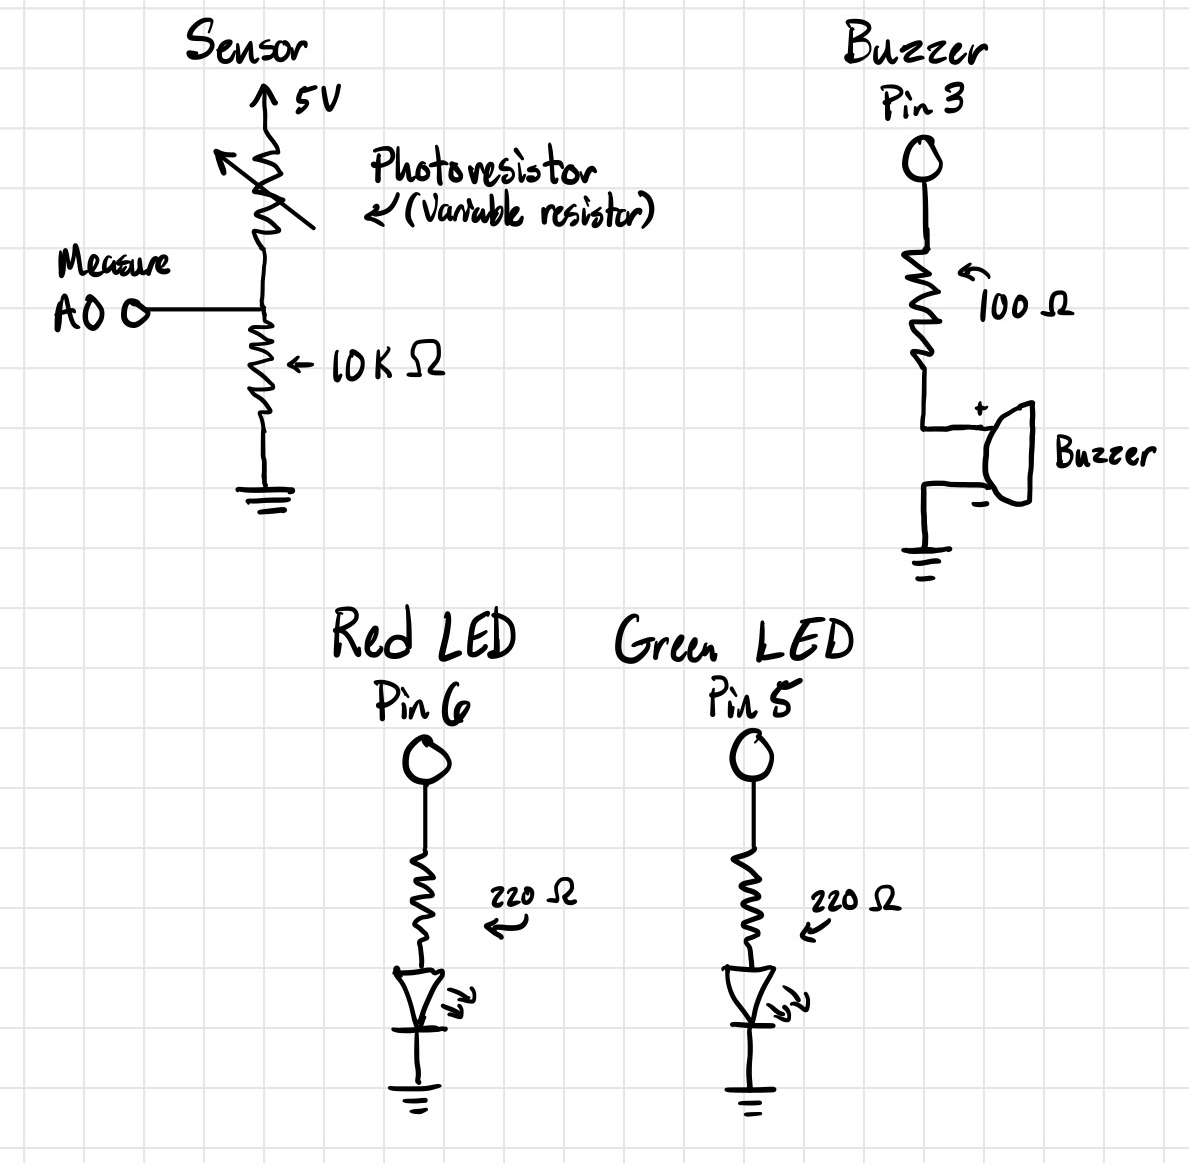 Sensor
5V
Photoresistor
(Variable resistor)
Measure
A0
10K Ω
Buzzer
Pin 3
100 Ω
+
Buzzer
-
Red LED
Pin 6
220 Ω
Green LED
Pin 5
220 Ω